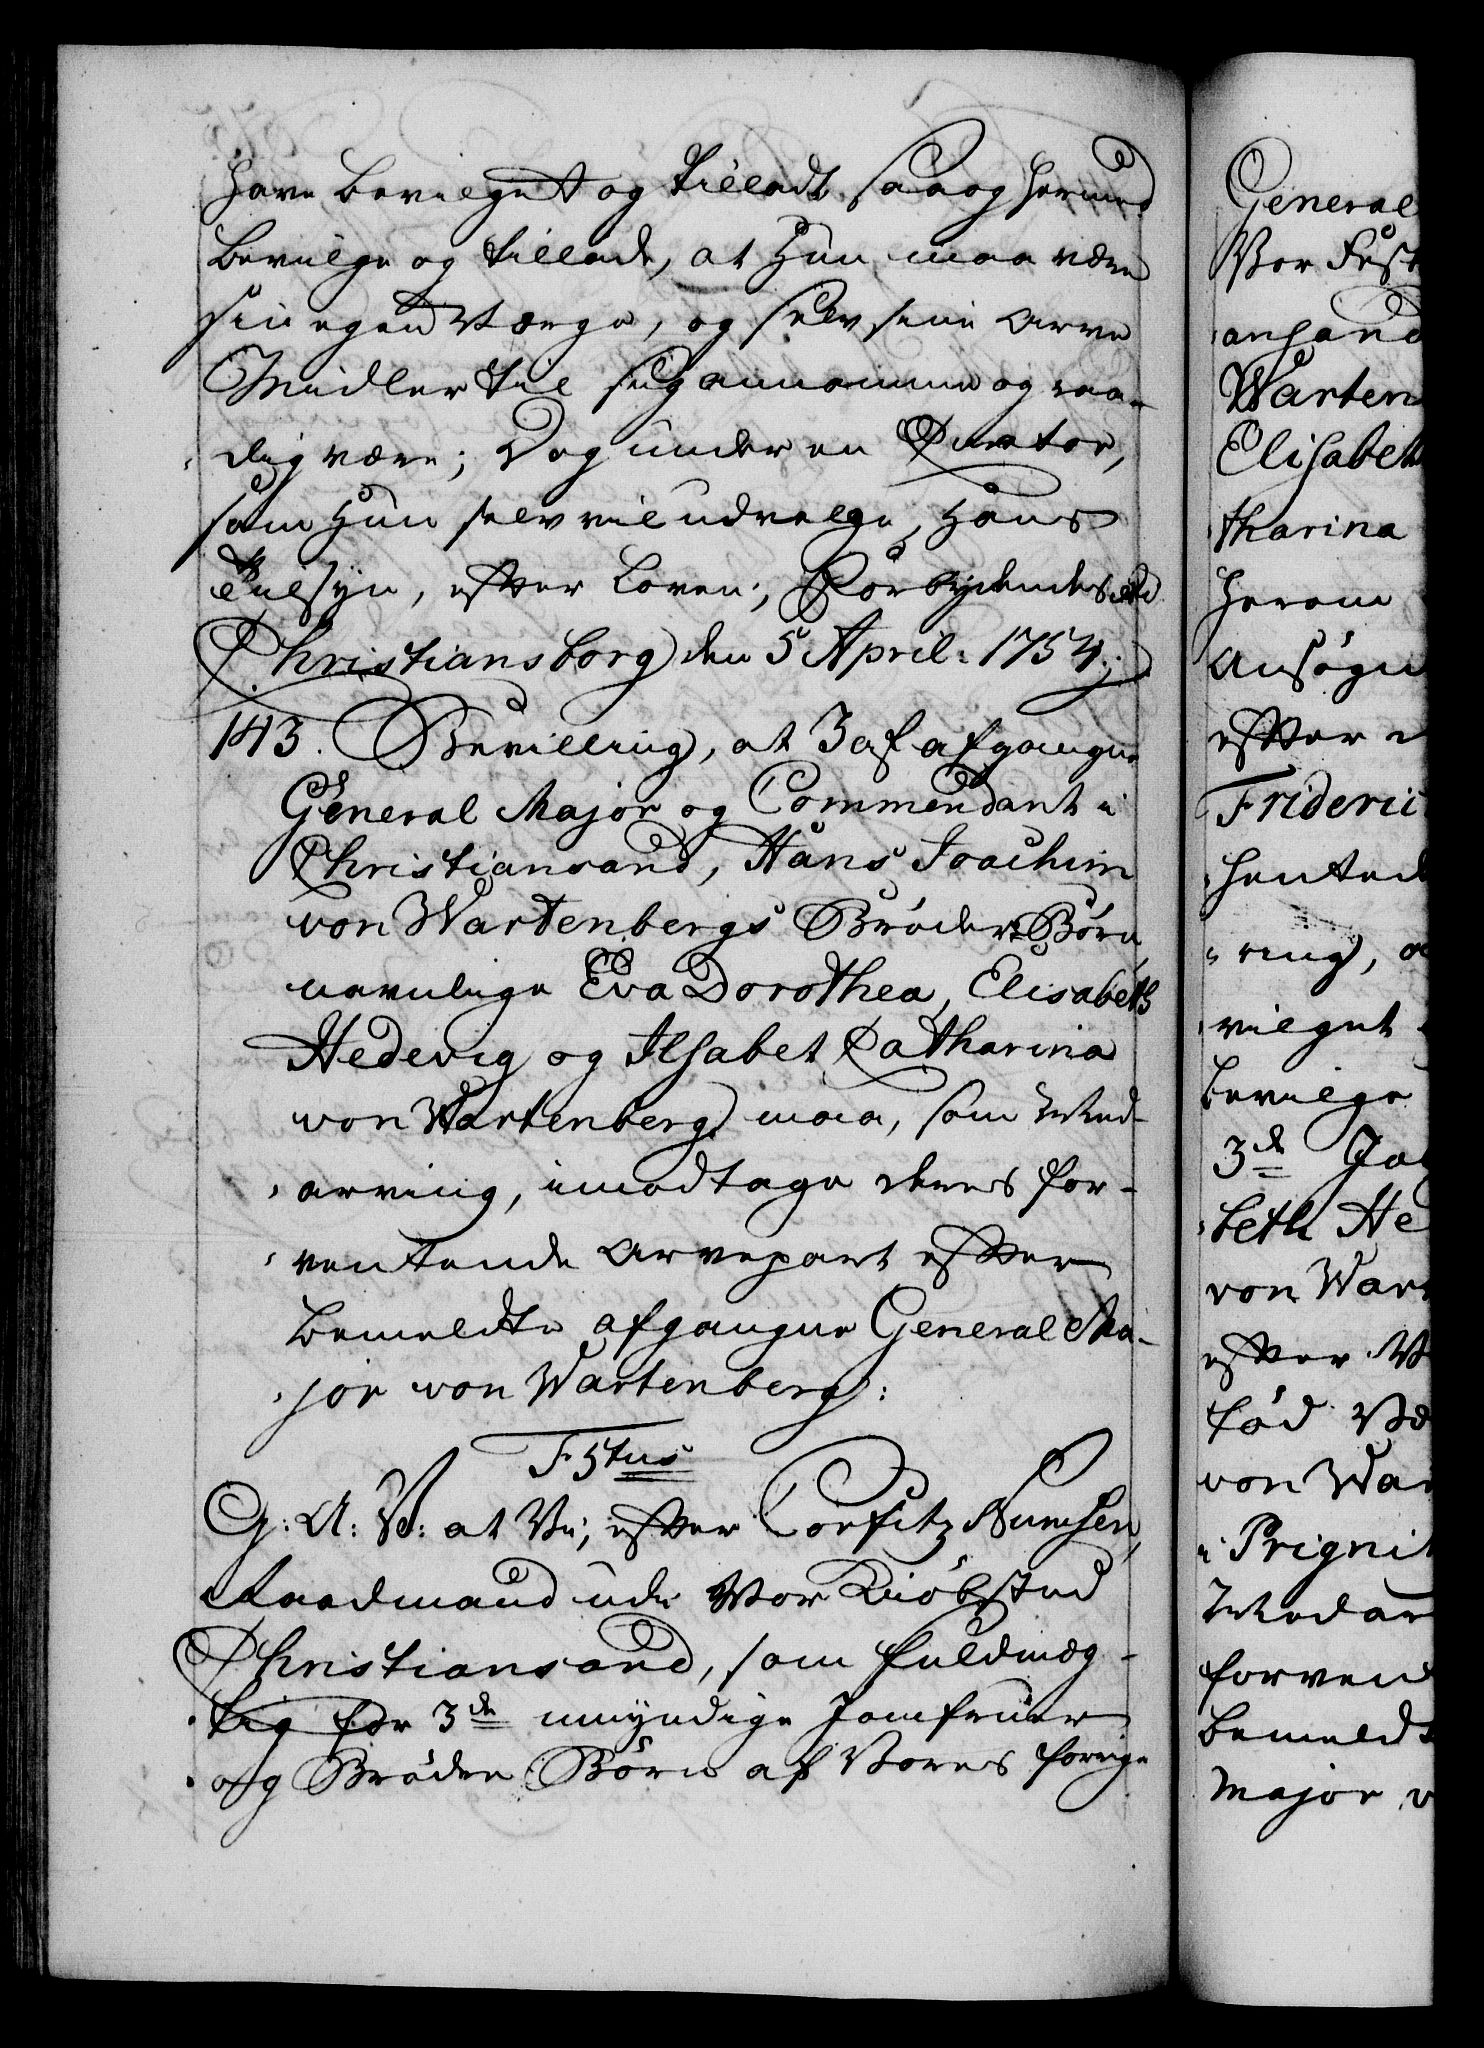 have bevilget og tilladt, saa og hermed
bevilge og tillade, at Hun maa være
sin egen Værge, og selv sine Arve
Midler til sig annamme og raa-
dig være; Dog under en Curator,
som Hun selv vil udvelge, Hans
Tilsyn, efter Loven; Forbydendes etc
Christiansborg den 5 April: 1754.
143. Bevilling, at 3 af afgangne
General Major og Commendant i
Christiansand, Hans Joachim
von Wartenbergs Broder Børn,
navnlige Eva Dorothea, Elisabeth
Hedevig og Ilsabet Catharina
von Wartenberg maa, som Med-
arving, imodtage deres for-
ventende Arvepart efter
bemeldte afgangne General Ma-
jor von Wartenberg:
F 5tus
G: A: V: at Vi, efter Corfitz Numsen,
Raadmand udi Vor Kiøbsted
Christiansand, som fuldmæg-
tig for 3de umyndige Jomfruer
og Broder Børn af Vores forrige
General
Vor Fest
ansand
Warten
Elisabeth
tharina
herom
Ansøgn
efter
Frideric
hented
ring, o
vilget
bevilge
3de Jo
beth He
von Wart
efter V
fød Vo
von War
i Prignit
Medar
forven
bemeldt
Major v